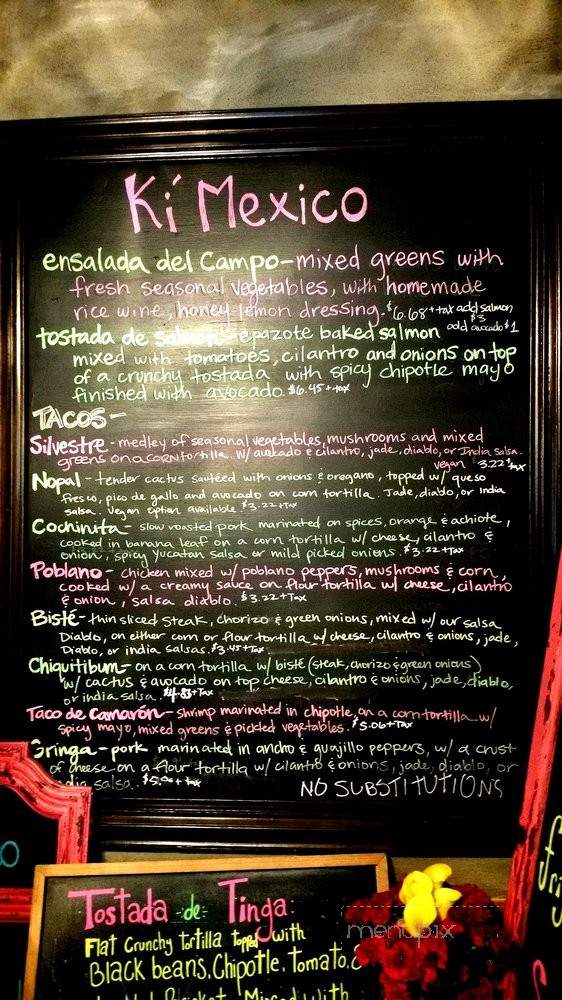 Kí Mexico
ensalada del Campo - mixed greens with
fresh seasonal vegetables, with homemade
rice wine, honey lemon dressing. $6.68 + tax add salmon $3
add avocado $1
tostada de salmon - epazote baked salmon
mixed with tomatoes, cilantro and onions on top
of a crunchy tostada with spicy chipotle mayo
finished with avocado. $6.45 + tax
TACOS -
Silvestre - medley of seasonal vegetables, mushrooms and mixed
greens on a corn tortilla. w/ avocado & cilantro, jade, diablo, or India salsa.
vegan $3.22 + tax
Nopal - tender cactus sautéed with onions & oregano, topped w/ queso
fresco, pico de gallo and avocado on corn tortilla. Jade, diablo, or India
salsa. Vegan option available. $3.22 + tax
Cochinita - slow roasted pork marinated on spices, orange & achiote,
cooked in banana leaf on a corn tortilla w/ cheese, cilantro &
onion, spicy Yucatan salsa or mild picked onions. $3.22 + Tax
Poblano - chicken mixed w/ poblano peppers, mushrooms & corn,
cooked w/ a creamy sauce on flour tortilla w/ cheese, cilantro
& onion, salsa diablo. $3.22 + Tax
Bisté - thin sliced steak, chorizo & green onions, mixed w/ our salsa
Diablo, on either corn or flour tortilla w/ cheese, cilantro & onions, jade,
Diablo, or india salsas. $3.45 + Tax
Chiquitibum - on a corn tortilla w/ bisté (steak, chorizo & green onions)
w/ cactus & avocado on top cheese, cilantro & onions, jade, diablo,
or india salsa. $4.83 + Tax
Taco de Camarón - shrimp marinated in chipotle, on a corn tortilla w/
spicy mayo, mixed greens & pickled vegetables. $5.06 + Tax
Gringa - pork marinated in ancho & guajillo peppers, w/ a crust
of cheese on a flour tortilla w/ cilantro & onions, jade, diablo, or
dia salsa.
NO SUBSTITUTIONS
Tostada de Tinga:
Flat Crunchy tortilla topped with
Black beans, Chipotle, Tomato,
Mixed with
menupix